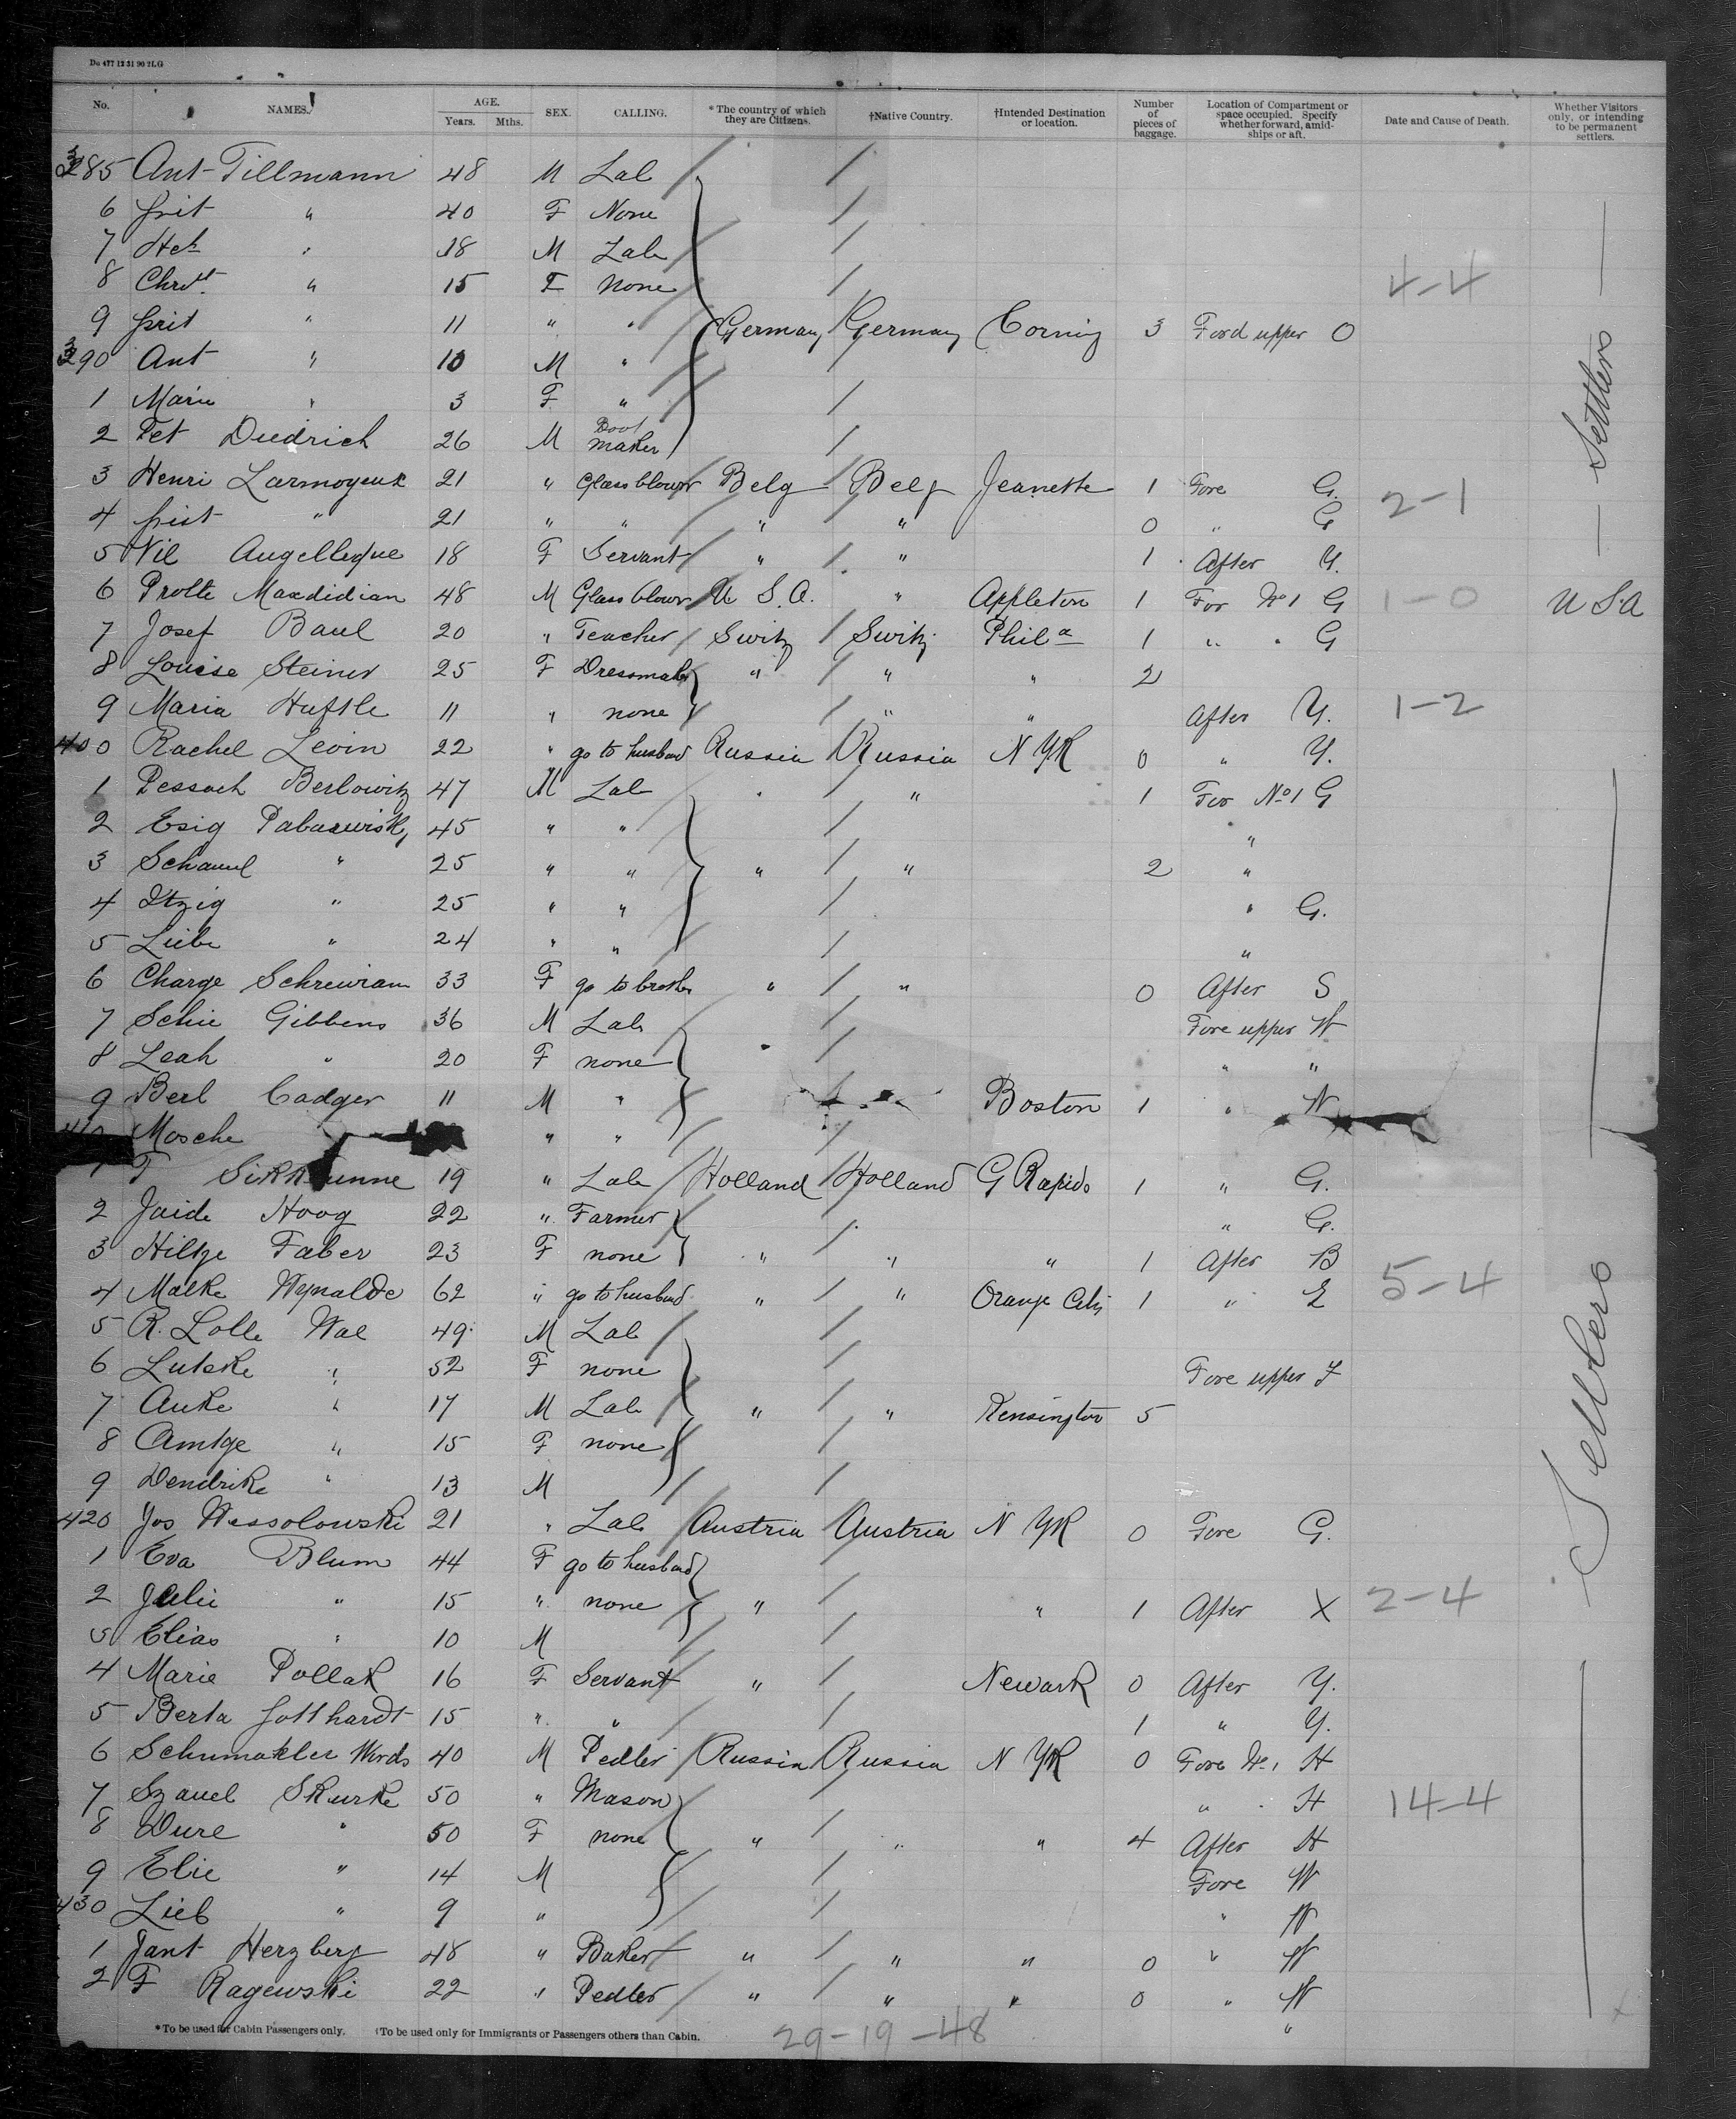 Do 477 12 31 90 2LG
No. NAMES. AGE. Years. Mths. SEX. CALLING. * The country of which they are Citizens. †Native Country. †Intended Destination or location. Number of pieces of baggage. Location of Compartment or space occupied. Specify whether forward, amidships or aft. Date and Cause of Death. Whether Visitors only, or intending to be permanent settlers.
385 Ant Tillmann 48 M Lab
6 " 40 F None
7 Hch " 18 M Lab
8 Chrst. " 15 F none 4-4
9 " 11 " " Germany Germany Corning 3 Ford upper O
390 Ant " 10 M "
1 Marie " 3 F "
2 Pet Diedrich 26 M Boot maker
3 Henri Larmoyeux 21 " Glassblowr Belg Belg Jeanette 1 Fore G. 2-1
4 " 21 " " " " 0 " G
5 Vil 18 F Servant " " 1 After Y.
6 Prolte Maxdidian 48 M Glassblowr U S.A. " Appleton 1 For No1 G 1-0 U S.A
7 Josef Baul 20 " Teacher Switz Switz Phila 1 " " G
8 Louise Steiner 25 F Dressmaker " " " 2
9 Maria Huftle 11 " none " " After Y. 1-2
400 Rachel Levin 22 " go to husband Russia Russia N YK 0 " Y.
1 Pessach Berlowitz 47 M Lab " " 1 For No1 G
2 Esig 45 " " "
3 Schamul " 25 " " " " 2 "
4 Itzig " 25 " " " G.
5 Liebe " 24 " " "
6 Charge Schreiwian 33 F go to brother " " 0 After S
7 Schie Gibbens 36 M Lab Fore upper W
8 Leah " 20 F none " " "
9 Berl Cadger 11 M " Boston 1 " W
410 Mosche " "
1 F 19 " Lab Holland Holland G Rapids 1 " G.
2 Jaide Hoog 22 " Farmer " G.
3 Hiltje Faber 23 F none " " " 1 After B
4 Malke Wynalde 62 " go to husband " " Orange City 1 " E 5-4
5 R. Lolle Wal 49 M Lab
6 Lutske " 52 F none Fore upper F
7 Auke " 17 M Lab " " Kensington 5
8 Amtge " 15 F none
9 Dendrike " 13 M
420 Jos Wessolowski 21 " Lab Austria Austria N YK 0 Fore G.
1 Eva Blum 44 F go to husband
2 Julie " 15 " none " " 1 After X 2-4
3 Elias " 10 M
4 Marie Pollak 16 F Servant " Newark 0 After Y.
5 Berta Gotthardt 15 " " 1 " Y.
6 Schumakler Words 40 M Pedler Russia Russia N YK 0 Fore No1 H
7 Szauel Skurke 50 " Mason " " H 14-4
8 Dure " 50 F none " " " 4 After H
9 Elie " 14 M Fore W
430 Lieb " 9 " " W
1 Jant Herzberg 48 " Baker " " " 0 " W
2 F Ragewski 22 " Pedler " " " 0 " W
"
— Settlers —
Settlers
*To be used for Cabin Passengers only. †To be used only for Immigrants or Passengers others than Cabin. 29-19-48